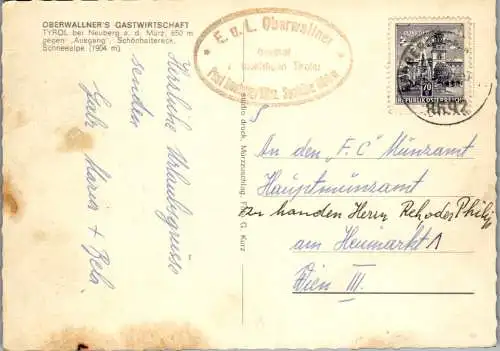 OBERWALLNER'S GASTWIRTSCHAFT
TYROL bei Neuberg a. d. Mürz, 850 m
gegen „Ausgang“: Schönhaltereck,
Schneealpe (1904 m)
Herzliche Urlaubsgrüsse
senden
Gabi Maria + Bela
E. u. L. Oberwallner
Gasthof
Tiroler
Post
studio druck, Mürzzuschlag, Foto G. Kurz
REPUBLIK ÖSTERREICH
70
8692
An den „F.C“ Münzamt
Hauptmünzamt
zu handen Herrn Reh oder Philip
am Heumarkt 1
Wien III.